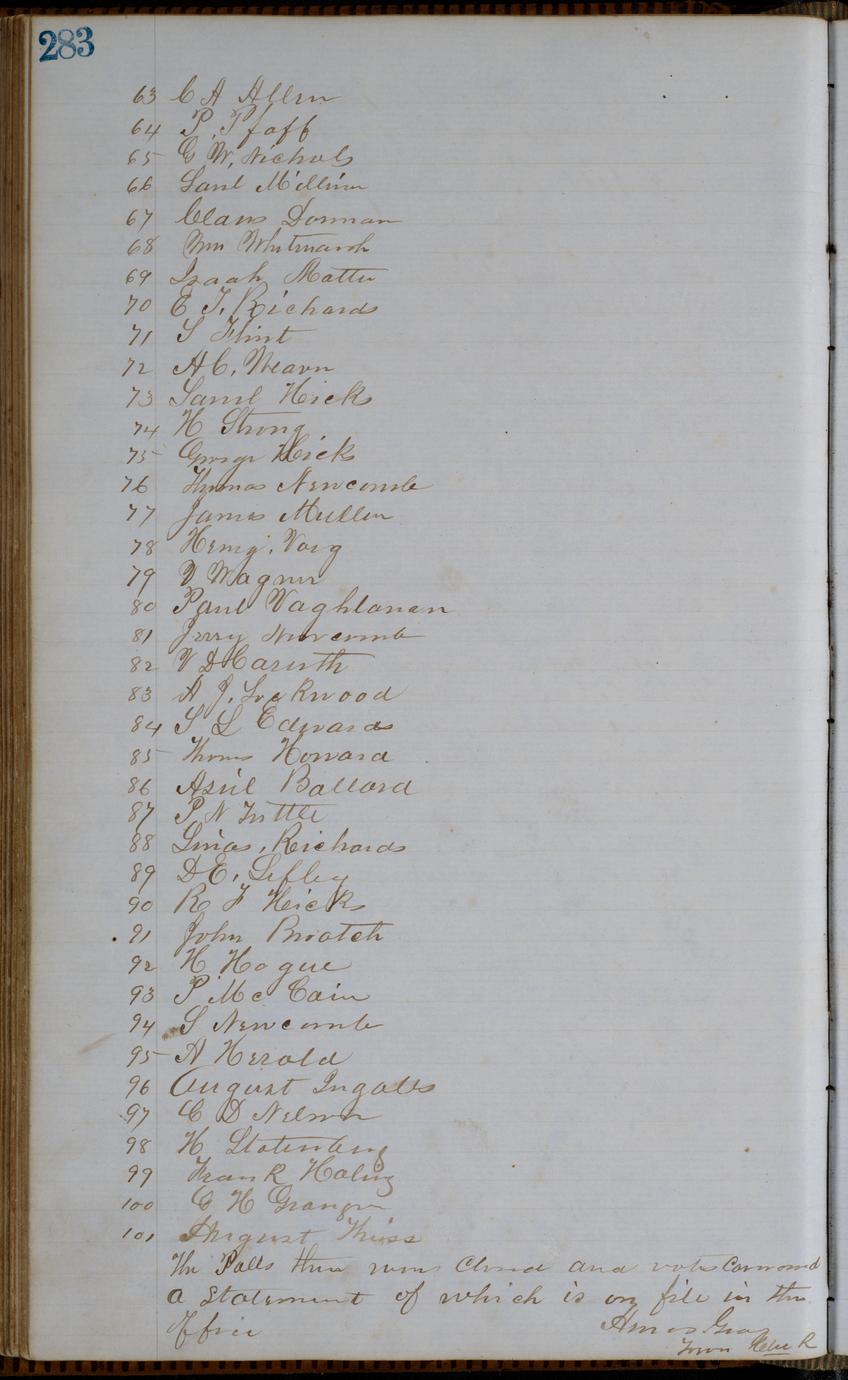 283
63 C A Allen
64 P. Pfaff
65 G W, Nichols
66 Saml
67 Claus Dorman
68 Wm Whitmarsh
69 Isaah
70 E T, Richards
71 S Flint
72 A C,
73 Saml Hicks
74 H Strong
75 George Hicks
76 Thomas Newcomb
77 James Mullen
78 Henry,
79 V Wagner
80 Paul
81 Jerry Newcomb
82 V D Caruth
83 A J, Lockwood
84 S L Edwards
85 Thoms Howard
86 Ballard
87 P N Tuttle
88 Richards
89 D E, Sefley
90 R F Hicks
91 John
92 H Hogue
93 P Mc Cain
94 S Newcomb
95 A Herold
96 August Ingalls
97 C D Nelson
98 H
99 Frank
100 G H Granger
101 August
The Polls then were Closed and votes Canvased
a Statement of which is on file in this
Office Amos Gray
Town Clerk